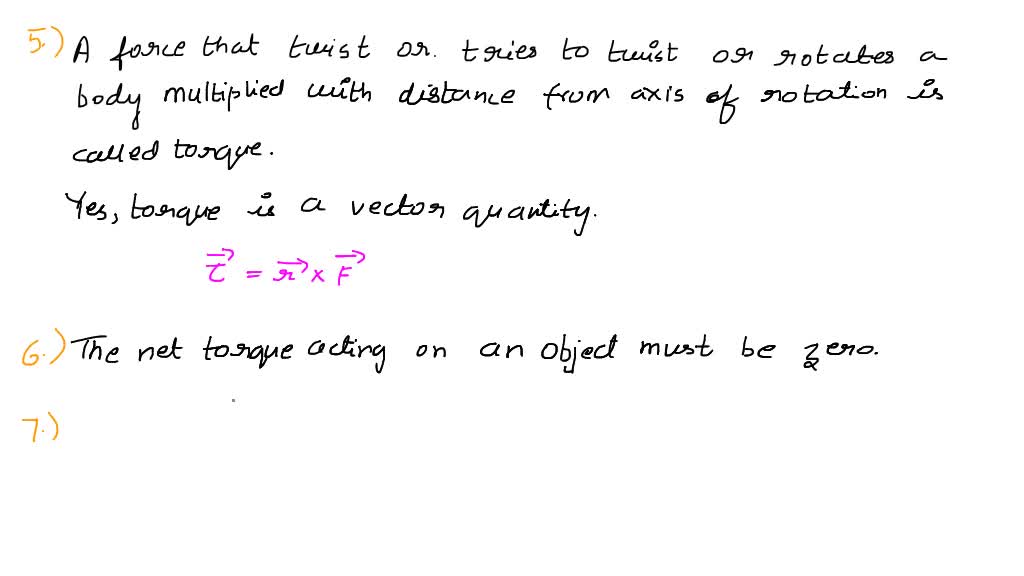 5.) A force that twist or. tries to twist or rotates a
body multiplied with distance from axis of rotation is
called torque.
Yes, torque is a vector quantity.
τ⃗ = r⃗ × F⃗
6.) The net torque acting on an object must be zero.
7.)